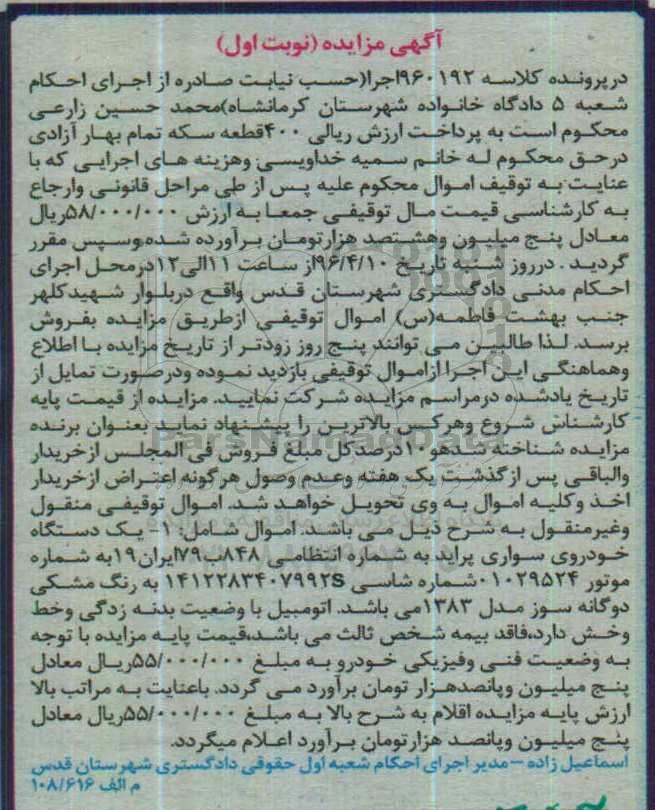 آگهی مزایده (نوبت اول)
در پرونده کلاسه ۹۶۰۱۹۲اجرا(حسب نیابت صادره از اجرای احکام
شعبه ۵ دادگاه خانواده شهرستان کرمانشاه)محمد حسین زارعی
محکوم است به پرداخت ارزش ریالی ۴۰۰قطعه سکه تمام بهار آزادی
درحق محکوم له خانم سمیه خداویسی وهزینه های اجرایی که با
عنایت به توقیف اموال محکوم علیه پس از طی مراحل قانونی وارجاع
به کارشناسی قیمت مال توقیفی جمعا به ارزش ۵۸/۰۰۰/۰۰۰ریال
معادل پنج میلیون وهشتصد هزارتومان برآورده شده،وسپس مقرر
گردید . درروز شنبه تاریخ ۹۶/۴/۱۰از ساعت ۱۱الی۱۲درمحل اجرای
احکام مدنی دادگستری شهرستان قدس واقع دربلوار شهیدکلهر
جنب بهشت فاطمه(س) اموال توقیفی ازطریق مزایده بفروش
برسد. لذا طالبین می توانند پنج روز زودتر از تاریخ مزایده با اطلاع
وهماهنگی این اجرا ازاموال توقیفی بازدید نموده ودرصورت تمایل از
تاریخ یادشده درمراسم مزایده شرکت نمایید. مزایده از قیمت پایه
کارشناس شروع وهرکس بالاترین را پیشنهاد نماید بعنوان برنده
مزایده شناخته شدهو۱۰درصدکل مبلغ فروش فی المجلس ازخریدار
والباقی پس ازگذشت یک هفته وعدم وصول هرگونه اعتراض ازخریدار
اخذ وکلیه اموال به وی تحویل خواهد شد. اموال توقیفی منقول
وغیرمنقول به شرح ذیل می باشد. اموال شامل: ۱- یک دستگاه
خودروی سواری پراید به شماره انتظامی ۸۴۸ب۷۹ایران۱۹به شماره
موتور ۰۱۰۲۹۵۲۴شماره شاسی ۱۴۱۲۲۸۳۴۰۷۹۹۲S به رنگ مشکی
دوگانه سوز مدل ۱۳۸۳می باشد. اتومبیل با وضعیت بدنه زدگی وخط
وخش دارد،فاقد بیمه شخص ثالث می باشد،قیمت پایه مزایده با توجه
به وضعیت فنی وفیزیکی خودرو به مبلغ ۵۵/۰۰۰/۰۰۰ریال معادل
پنج میلیون وپانصدهزار تومان برآورد می گردد. باعنایت به مراتب بالا
ارزش پایه مزایده اقلام به شرح بالا به مبلغ ۵۵/۰۰۰/۰۰۰ریال معادل
پنج میلیون وپانصد هزارتومان برآورد اعلام میگردد.
اسماعیل زاده – مدیر اجرای احکام شعبه اول حقوقی دادگستری شهرستان قدس
م الف ۱۰۸/۶۱۶
ParsNamadData